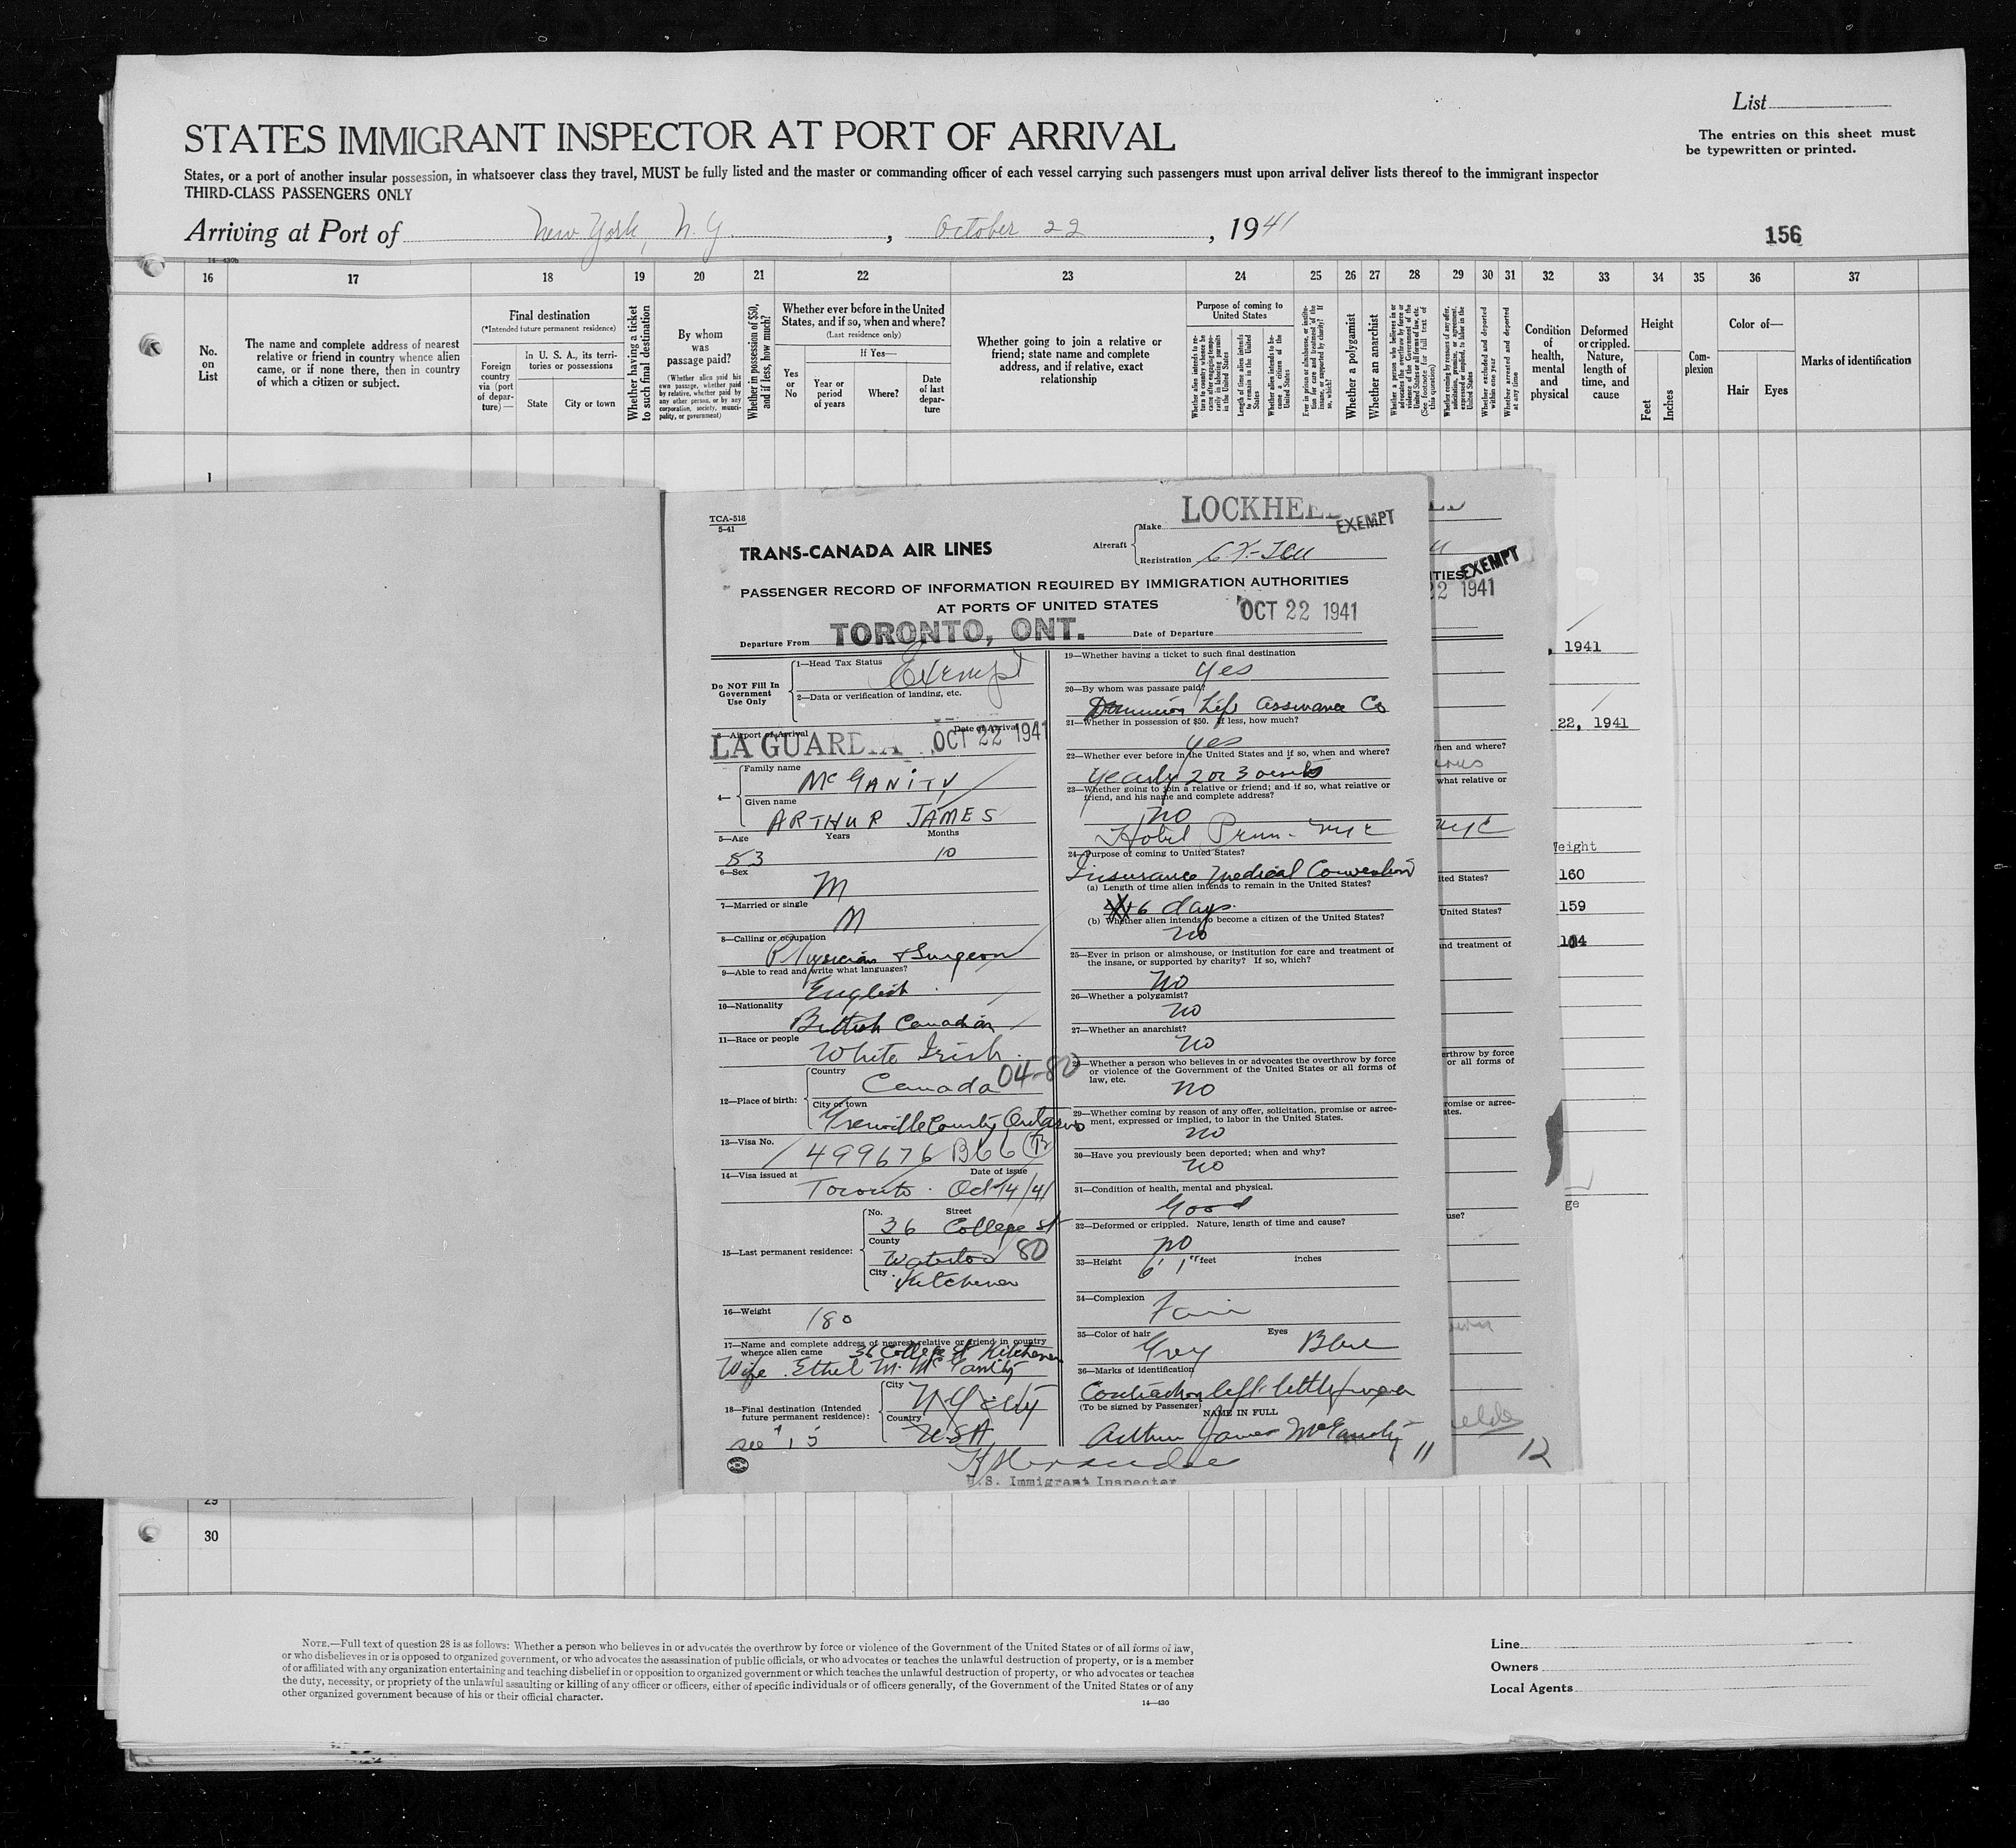 List
STATES IMMIGRANT INSPECTOR AT PORT OF ARRIVAL
The entries on this sheet must
be typewritten or printed.
States, or a port of another insular possession, in whatsoever class they travel, MUST be fully listed and the master or commanding officer of each vessel carrying such passengers must upon arrival deliver lists thereof to the immigrant inspector
THIRD-CLASS PASSENGERS ONLY
Arriving at Port of New York, N.Y. , October 22 , 1941
156
14—430b
16 17 18 19 20 21 22 23 24 25 26 27 28 29 30 31 32 33 34 35 36 37
No. on List
The name and complete address of nearest relative or friend in country whence alien came, or if none there, then in country of which a citizen or subject.
Final destination
(*Intended future permanent residence)
Foreign country via (port of departure)—
In U. S. A., its territories or possessions
State
City or town
Whether having a ticket to such final destination
By whom was passage paid?
(Whether alien paid his own passage, whether paid by relative, whether paid by any other person, or by any corporation, society, municipality, or government)
Whether in possession of $50, and if less, how much?
Whether ever before in the United States, and if so, when and where?
(Last residence only)
Yes or No
If Yes—
Year or period of years
Where?
Date of last departure
Whether going to join a relative or friend; state name and complete address, and if relative, exact relationship
Purpose of coming to United States
Whether alien intends to return to country whence he came after engaging temporarily in laboring pursuits in the United States
Length of time alien intends to remain in the United States
Whether alien intends to become a citizen of the United States
Ever in prison or almshouse, or institution for care and treatment of the insane, or supported by charity? If so, which?
Whether a polygamist
Whether an anarchist
Whether a person who believes in or advocates the overthrow by force or violence of the Government of the United States or all forms of law, etc. (See footnote for full text of this question)
Whether coming by reason of any offer, solicitation, promise, or agreement, expressed or implied, to labor in the United States
Whether excluded and deported within one year
Whether arrested and deported at any time
Condition of health, mental and physical
Deformed or crippled. Nature, length of time, and cause
Height
Feet
Inches
Complexion
Color of—
Hair
Eyes
Marks of identification
1
TCA-518
5-41
TRANS-CANADA AIR LINES
Aircraft
Make LOCKHEE
EXEMPT
Registration
PASSENGER RECORD OF INFORMATION REQUIRED BY IMMIGRATION AUTHORITIES
AT PORTS OF UNITED STATES
Departure From TORONTO, ONT.
Date of Departure OCT 22 1941
Do NOT Fill In Government Use Only
1—Head Tax Status Exempt
2—Data or verification of landing, etc.
3—Airport of Arrival LA GUARDIA
Date of Arrival OCT 22 1941
4—
Family name McGANITY
Given name ARTHUR JAMES
5—Age 53 Years 10 Months
6—Sex M
7—Married or single M
8—Calling or occupation Physician & Surgeon
9—Able to read and write what languages? English
10—Nationality British Canadian
11—Race or people White Irish
12—Place of birth:
Country Canada 04-80
City or town Grenville County Ontario
13—Visa No. 499676 B66
14—Visa issued at Toronto Date of issue Oct 14/41
15—Last permanent residence:
No. 36 Street College St
County Waterloo 80
City Kitchener
16—Weight 180
17—Name and complete address of nearest relative or friend in country whence alien came 36 College St Kitchener
Wife Ethel M. McGanity
18—Final destination (Intended future permanent residence):
City N Y City
Country USA
see 15
19—Whether having a ticket to such final destination
Yes
20—By whom was passage paid?
Dominion Life Assurance Co
21—Whether in possession of $50. If less, how much?
Yes
22—Whether ever before in the United States and if so, when and where?
Yearly 2 or 3 visits
23—Whether going to join a relative or friend; and if so, what relative or friend, and his name and complete address?
No
Hotel Penn. NYC
24—Purpose of coming to United States?
Insurance Medical Convention
(a) Length of time alien intends to remain in the United States?
6 days.
(b) Whether alien intends to become a citizen of the United States?
No
25—Ever in prison or almshouse, or institution for care and treatment of the insane, or supported by charity? If so, which?
No
26—Whether a polygamist?
No
27—Whether an anarchist?
No
28—Whether a person who believes in or advocates the overthrow by force or violence of the Government of the United States or all forms of law, etc.
No
29—Whether coming by reason of any offer, solicitation, promise or agreement, expressed or implied, to labor in the United States.
No
30—Have you previously been deported; when and why?
No
31—Condition of health, mental and physical.
Good
32—Deformed or crippled. Nature, length of time and cause?
No
33—Height 6' 1" feet inches
34—Complexion Fair
35—Color of hair Grey Eyes Blue
36—Marks of identification
Contraction left little finger
(To be signed by Passenger)
NAME IN FULL
Arthur James McGanity
11
U.S. Immigrant Inspector
EXEMPT
22 1941
, 1941
22, 1941
when and where?
what relative or
NYC
Weight
160
159
ited States?
United States?
nd treatment of
erthrow by force
or all forms of
romise or agree-
ates.
use?
ge
12
29
30
NOTE.—Full text of question 28 is as follows: Whether a person who believes in or advocates the overthrow by force or violence of the Government of the United States or of all forms of law,
or who disbelieves in or is opposed to organized government, or who advocates the assassination of public officials, or who advocates or teaches the unlawful destruction of property, or is a member
of or affiliated with any organization entertaining and teaching disbelief in or opposition to organized government or which teaches the unlawful destruction of property, or who advocates or teaches
the duty, necessity, or propriety of the unlawful assaulting or killing of any officer or officers, either of specific individuals or of officers generally, of the Government of the United States or of any
other organized government because of his or their official character.
14—430
Line
Owners
Local Agents